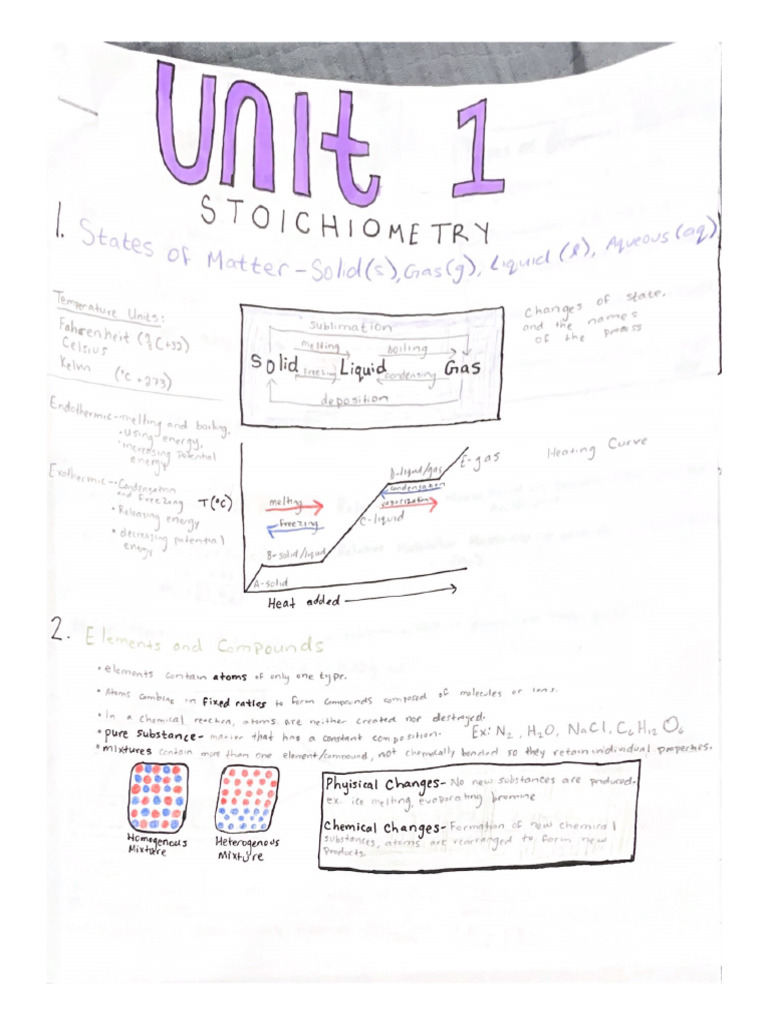 UNIT 1
STOICHIOMETRY
1. States of Matter - Solid(s), Gas(g), Liquid (l), Aqueous(aq)
Temperature Units:
Fahrenheit (9/5 C+32)
Celsius
Kelvin (°C +273)
Endothermic - melting and boiling.
• Using energy,
• increasing potential
energy
Exothermic - Condensation
and Freezing
• Releasing energy
• decreasing potential
energy
sublimation
melting
boiling
Solid
freezing
Liquid
condensing
Gas
deposition
Changes of state,
and the names
of the process
Heating Curve
T(°C)
melting
freezing
A-solid
B-solid/liquid
C-liquid
D-liquid/gas
condensation
vaporization
E-gas
Heat added
2. Elements and Compounds
• elements contain atoms of only one type.
• Atoms combine in fixed ratios to form compounds composed of molecules or ions.
• In a chemical reaction, atoms are neither created nor destroyed.
• pure substance - matter that has a constant composition. Ex: N₂, H₂O, NaCl, C₆H₁₂O₆
• mixtures contain more than one element/compound, not chemically bonded so they retain individual properties.
Homogenous
Mixture
Heterogenous
Mixture
Phyisical Changes - No new substances are produced.
ex. ice melting, evaporating bromine
Chemical Changes - Formation of new chemical
substances, atoms are rearranged to form new
products.